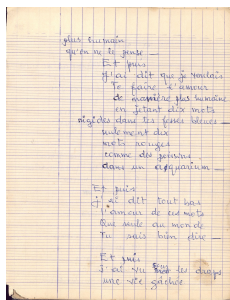 plus humain
qu'on ne le pense —
Et puis
j'ai dit que je voulais
Te faire l'amour
de manière plus humaine
en jetant dix mots
rigides dans tes fesses bleues —
seulement dix
mots rouges
comme des poissons
dans un aquarium —
Et puis
j'ai dit tout bas
l'amour de ces mots
Que seule au monde
Tu sais bien dire —
Et puis
J'ai vu les draps
une vie gâchée